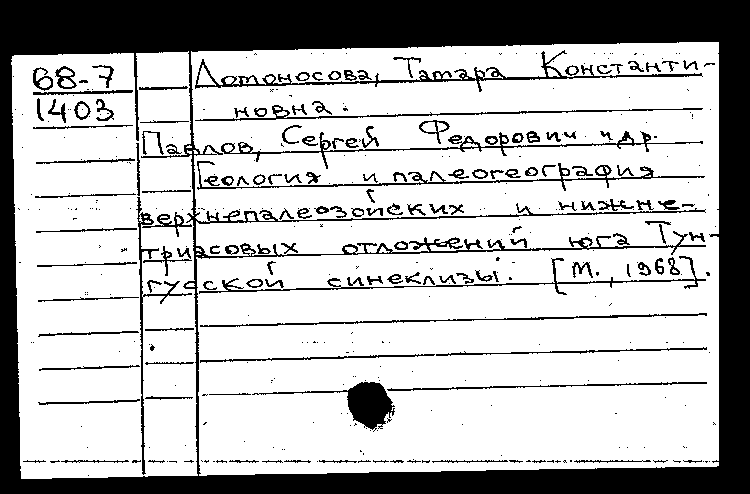 68-7
1403
Ломоносова, Тамара Константи-
новна.
Павлов, Сергей Федорович и др.
Геология и палеогеография
верхнепалеозойских и нижне-
триасовых отложений юга Тун-
гусской синеклизы. [М., 1968].